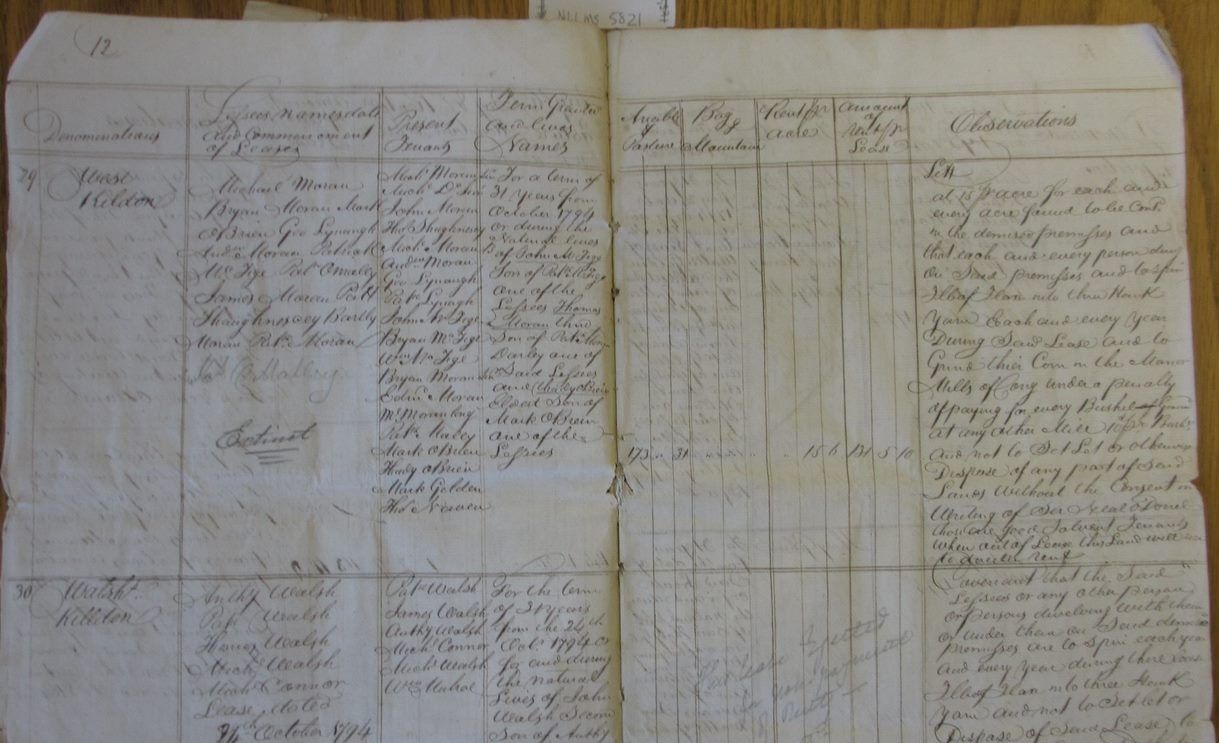 NLI MS 5821
12
Denominations
Lessees names date
and Commencement
of Leases
Present
Tenants
Term Granted
and lives
Names
Arable
&
Pasture
Bog
&
Mountain
Rent pr
acre
Amount
of
Rent pr
Lease
Observations
29
West
Kildon
Michael Moran
Bryan Moran Mark
OBrien Geo Lynaugh
Andw Moran Patrick
Mc Tige Patt Omalley
James Moran Patt
Shaughnessey Bartly
Moran Patk Moran
O Malley
Extinct
Michl Moran
Michl Do
John Moran
Thos Shughnesey
Michl Moran
Andw Moran
Geo Lynaugh
Patk Lynagh
John Mc Tige
Bryan Mc Tige
Wm Mc Tige
Bryan Moran
Edmd Moran
Ml Moran
Patk Maley
Mark OBrien
Henry OBrien
Mark Golden
Thos Naven
For a term of
31 years from
October 1794
or during the
Natural lives
of John Mc Tige
Son of Patk McTige
one of the
Lessees Thomas
Moran third
Son of Patk Moran
Darley one of
Said Lessees
and
Eldest Son of
Mark OBrein
one of the
Lessees
173 " 31 " " " " 15 6 131 5 10
Lett
at 15/ pr acre for each and
every acre found to be Contd
in the demised premisses and
that each and every person
on Said premisses and to Spin
Ilb of Flax into three Hank
Yarn Each and every Year
During Said Lease and to
Grind their Corn in the Manor
Mills of Cong under a penalty
of paying for every Bushel of Grain
at any other Mill
and not to Set Let or otherwise
Dispose of any part of Said
Lands without the Consent in
Writing of Sir Neal O'Donel
those are good Solvent Tenants
When out of Lease this Land will
to double Rent
30
Walsh
Killdon
Anthy Walsh
Patt Walsh
Henry Walsh
Michl Walsh
Michl Connor
Lease dated
24th October 1794
Patk Walsh
James Walsh
Anthy Walsh
Michl Connor
Michl Walsh
Wm Mulroe
For the term
of 31 years
from the 24th
Octr 1794 or
for and during
the natural
Lives of John
Walsh Second
Son of Anthy
Lease
non payment
Rent
Covenant that the Said
Lessees or any other person
or persons dwelling with them
or under them on Said demised
premisses are to Spin each year
and every year during there Lease
Ilb of Flax into three Hank
Yarn and not to Set let or
Dispose of Said Lease